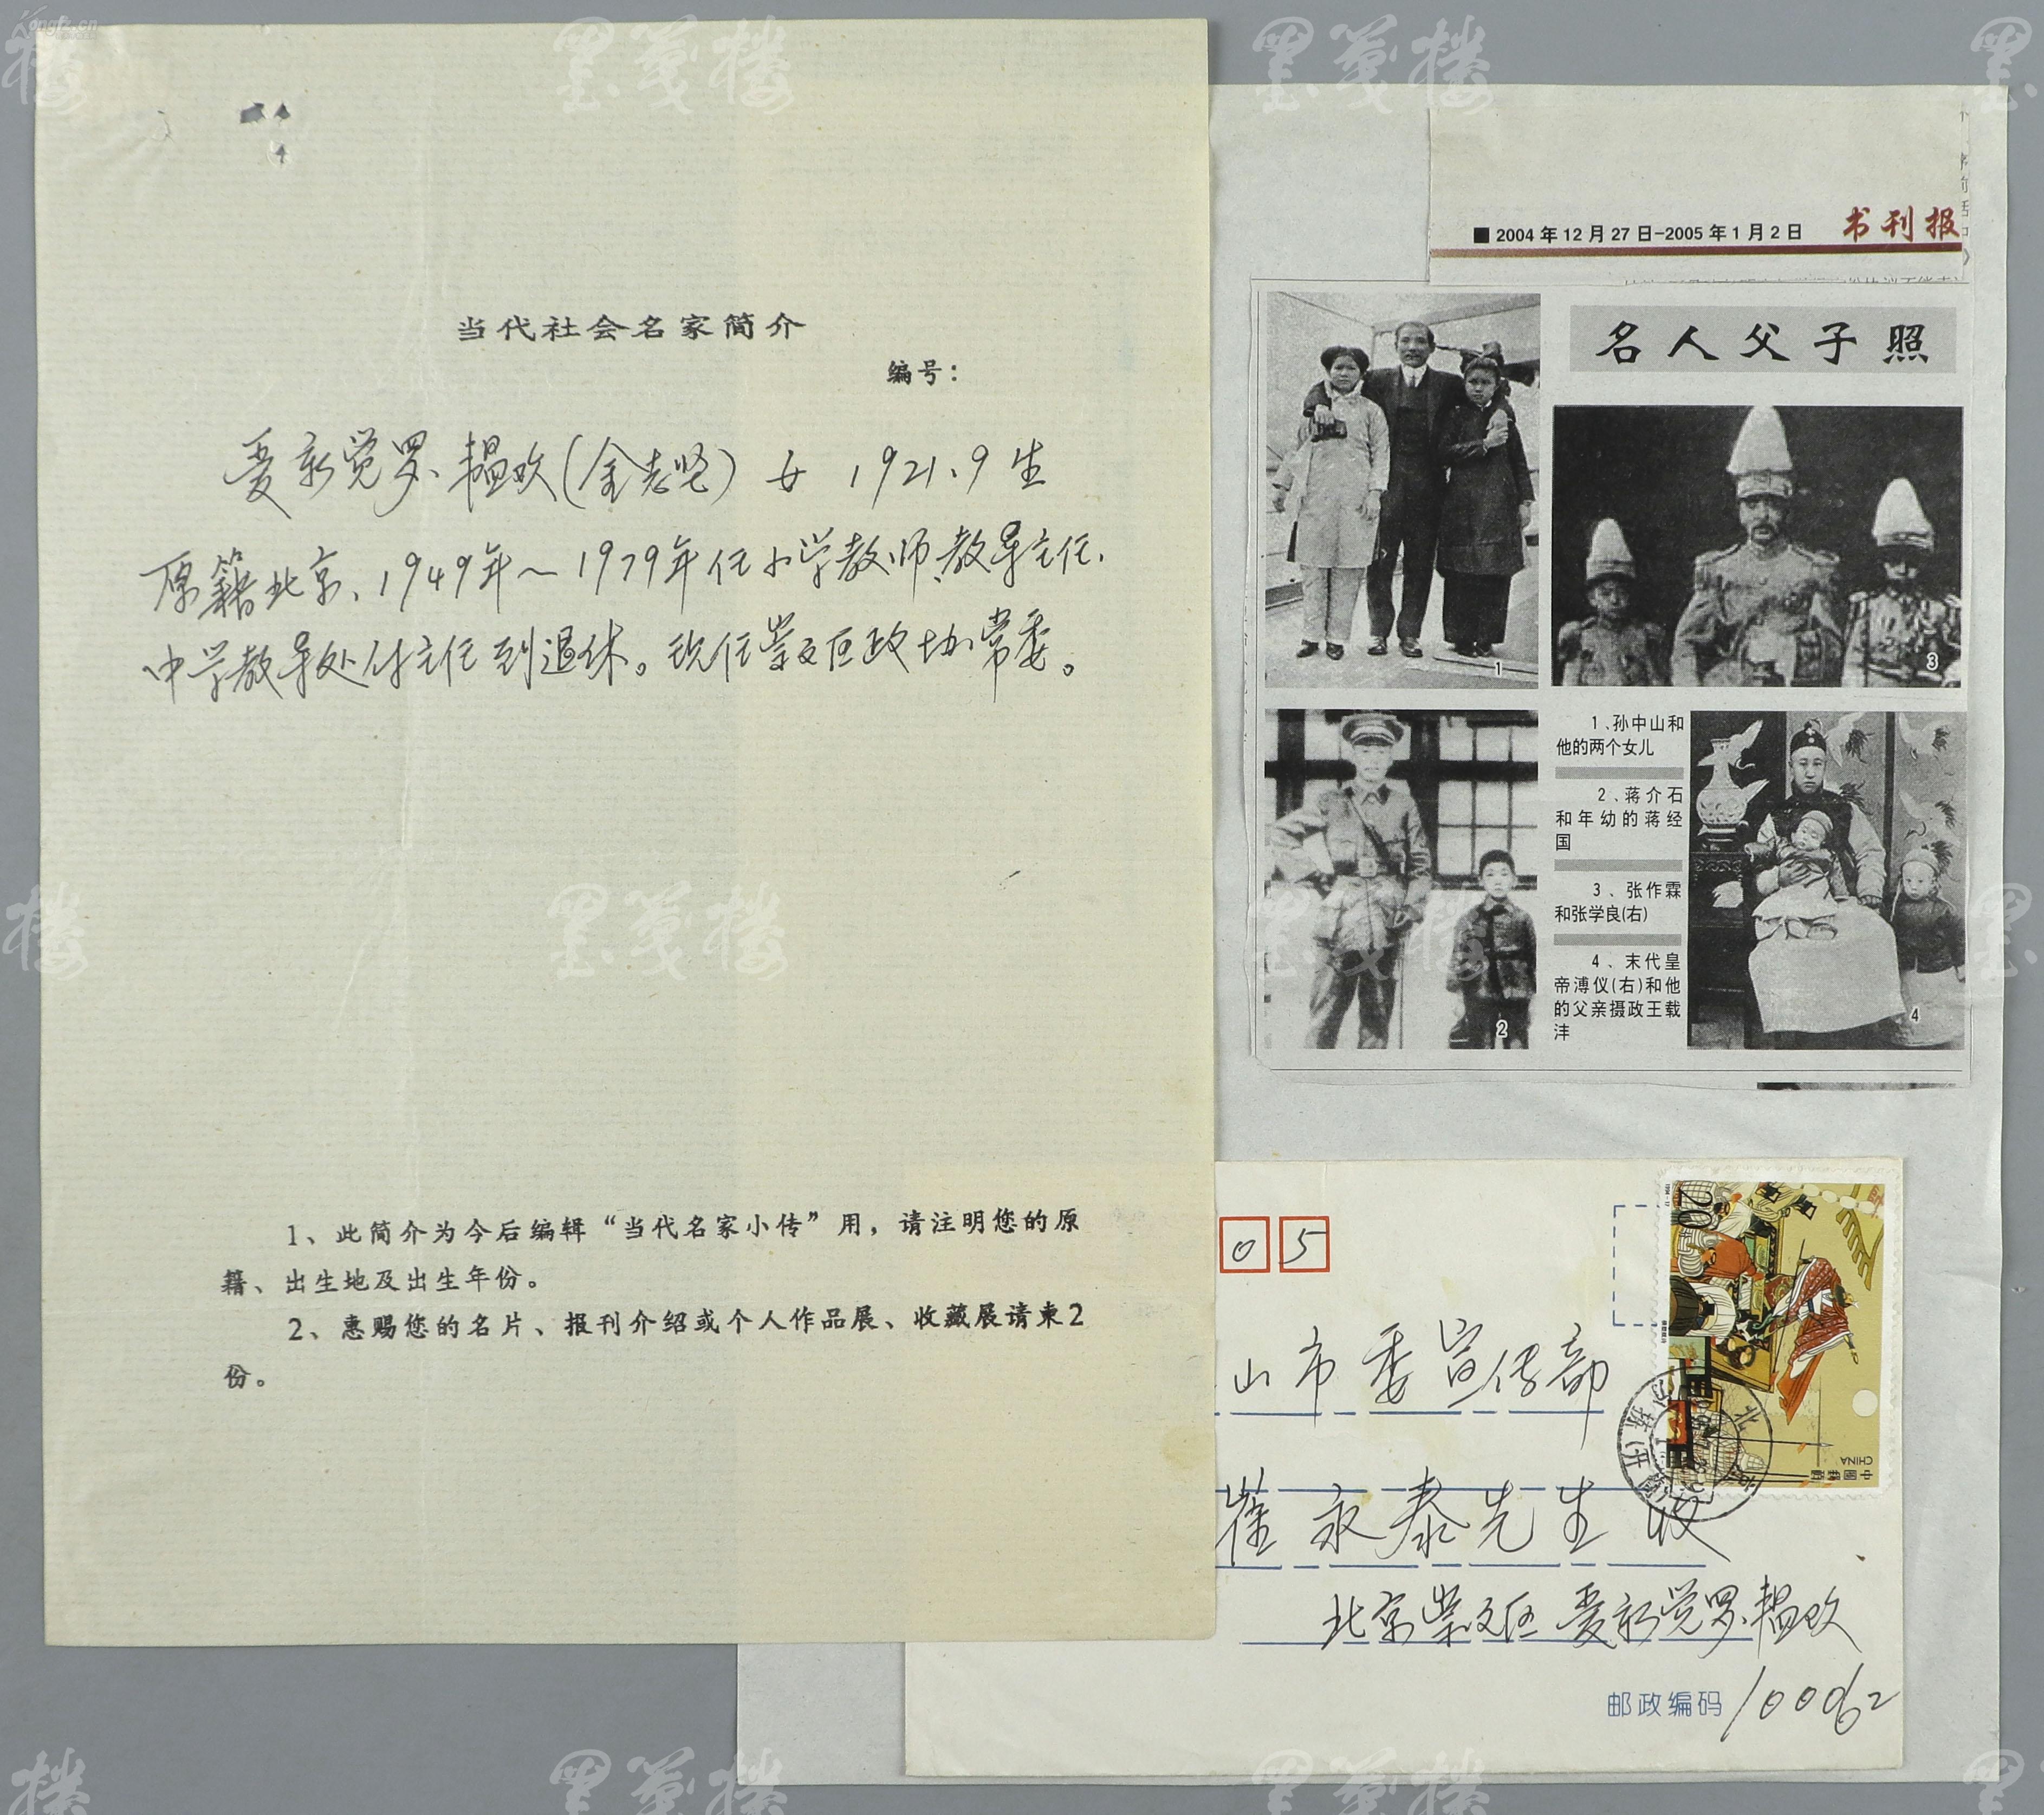 当代社会名家简介
编号：
爱新觉罗·韫欢（金志坚）女 1921.9生
原籍北京、1949年～1979年任小学教师、教导主任、
中学教导处付主任到退休。现任崇文区政协常委。
1、此简介为今后编辑“当代名家小传”用，请注明您的原
籍、出生地及出生年份。
2、惠赐您的名片、报刊介绍或个人作品展、收藏展请柬2
份。
■ 2004年12月27日-2005年1月2日 书刊报
名人父子照
1
3
2
4
1、孙中山和
他的两个女儿
2、蒋介石
和年幼的蒋经
国
3、张作霖
和张学良(右)
4、末代皇
帝溥仪(右)和他
的父亲摄政王载
沣
05
山市委宣传部
崔永泰先生 收
北京崇文区 爱新觉罗·韫欢
邮政编码 100062
20
中国邮政
CHINA
北京
墨笺楼